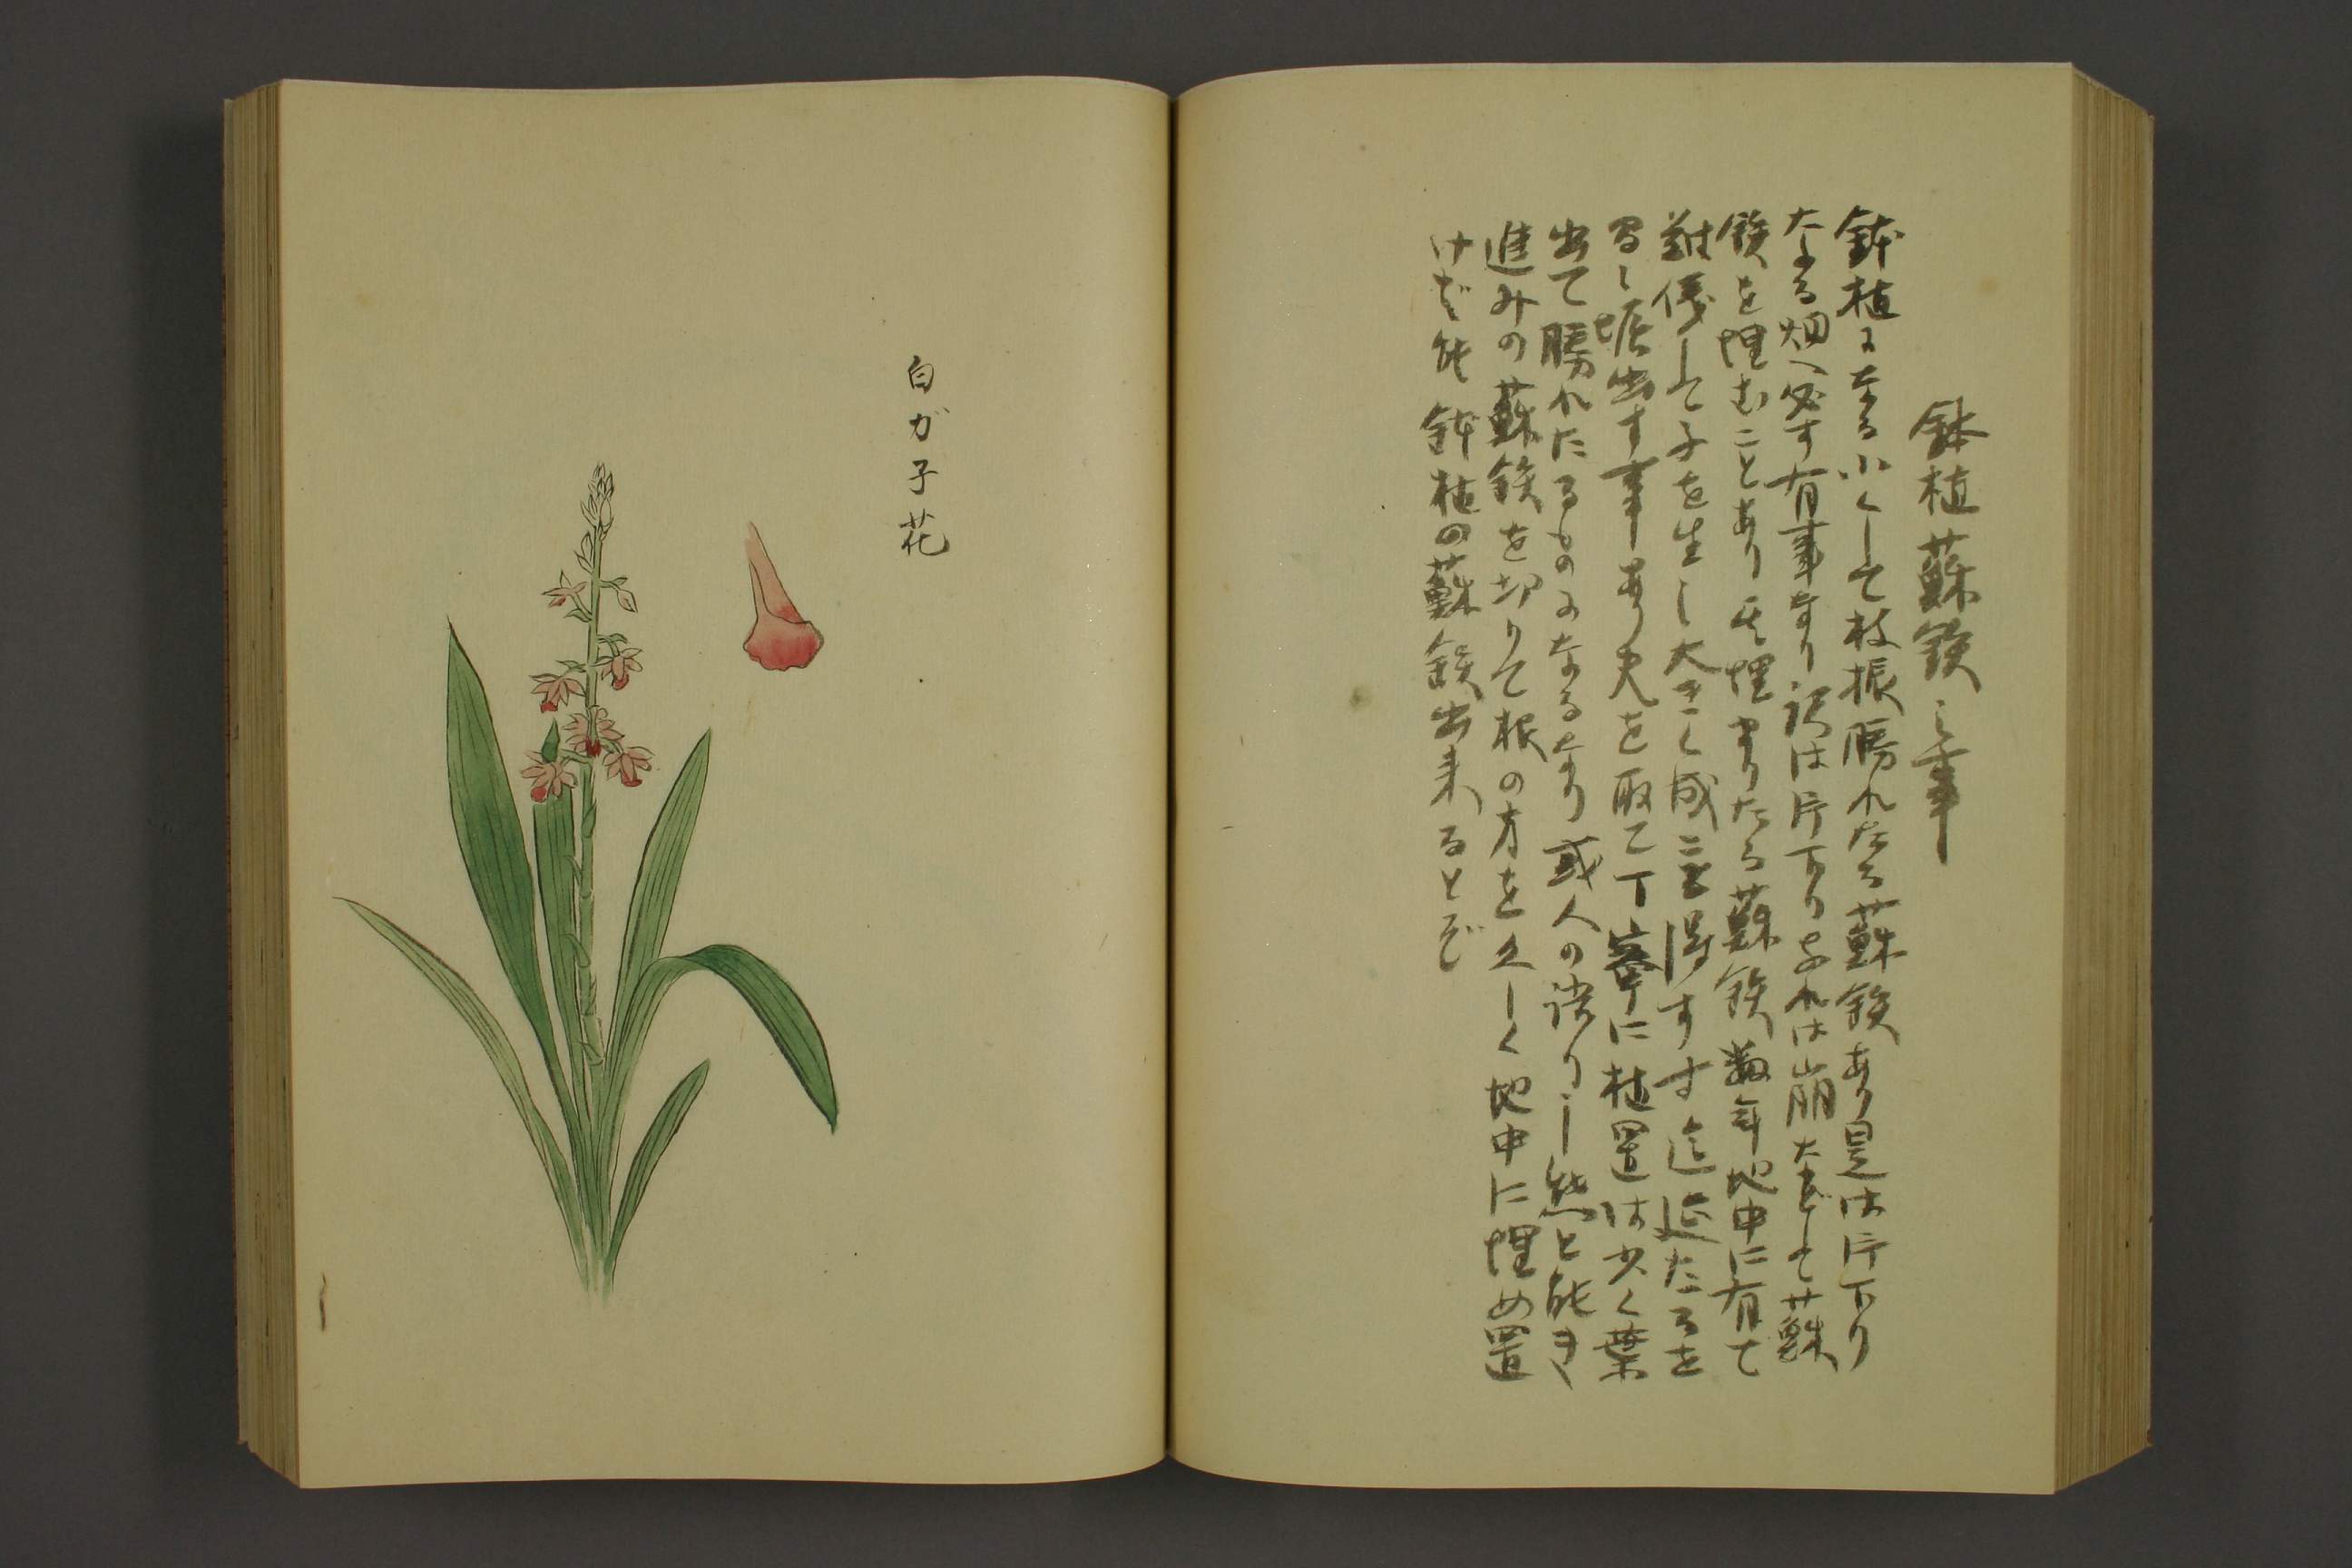 鉢植蘇鉄之事
鉢植になる小くして枝振勝れたる蘇鉄あり是は片下り
たる畑へ必す有事なり訳は片下りなれは山崩たをして蘇
鉄を埋むことあり其埋まりたる蘇鉄数年地中に有て
難儀して子を生し大きく成ことを得すす延たるを
見て堀出す事あり夫を取て丁寧に植置は少く葉
出て勝れたるものになるなり或人の語りし然と能き
進みの蘇鉄を切りて根の方を久しく地中に埋め置
けば能鉢植の蘇鉄出来るとぞ
白ガ子花